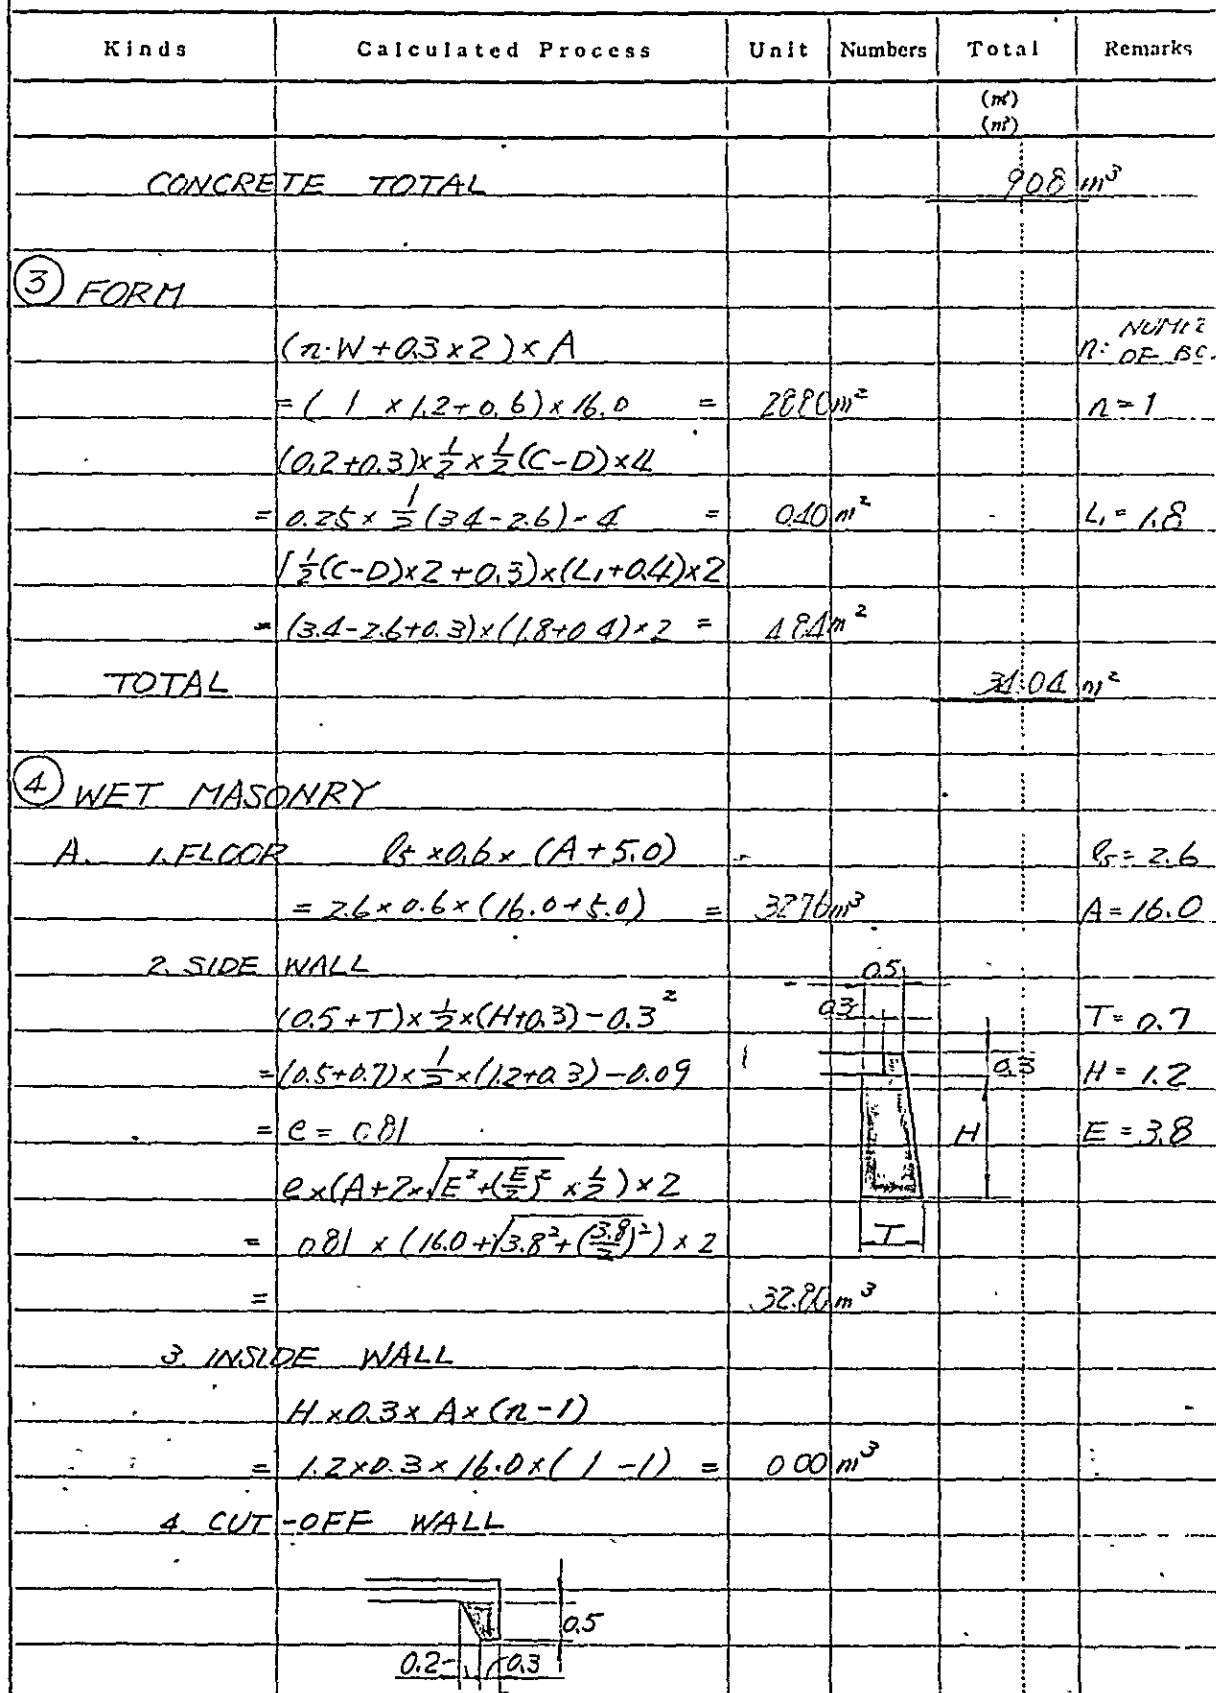 Kinds Calculated Process Unit Numbers Total Remarks
(m²)
(m³)
CONCRETE TOTAL 9.08 m³
③ FORM
(n·W+0.3×2)×A n: OF BC.
=(1×1.2+0.6)×16.0 = 28.80 m² n=1
(0.2+0.3)×½×½(C-D)×4
= 0.25×½(3.4-2.6)×4 = 0.40 m² L₁=1.8
(½(C-D)×2+0.3)×(L₁+0.4)×2
= (3.4-2.6+0.3)×(1.8+0.4)×2 = 4.84 m²
TOTAL 34.04 m²
④ WET MASONRY
A. 1. FLOOR ℓ₅×0.6×(A+5.0) = ℓ₅=2.6
= 2.6×0.6×(16.0+5.0) = 32.76 m³ A=16.0
2. SIDE WALL 0.5
(0.5+T)×½×(H+0.3)-0.3² 0.3 T=0.7
=(0.5+0.7)×½×(1.2+0.3)-0.09 0.3 H=1.2
= e = 0.81 H E=3.8
e×(A+2×√E²+(E/2)²×½)×2
= 0.81×(16.0+√3.8²+(3.8/2)²)×2 T
= 32.80 m³
3. INSIDE WALL
H×0.3×A×(n-1)
= 1.2×0.3×16.0×(1-1) = 0.00 m³
4. CUT-OFF WALL
0.5
0.2 0.3